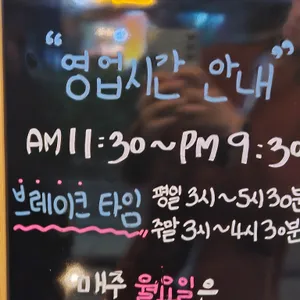 "영업시간 안내"
AM 11:30~PM 9:30
브레이크 타임 평일 3시~5시30분
주말 3시~4시30분
"매주 월요일은